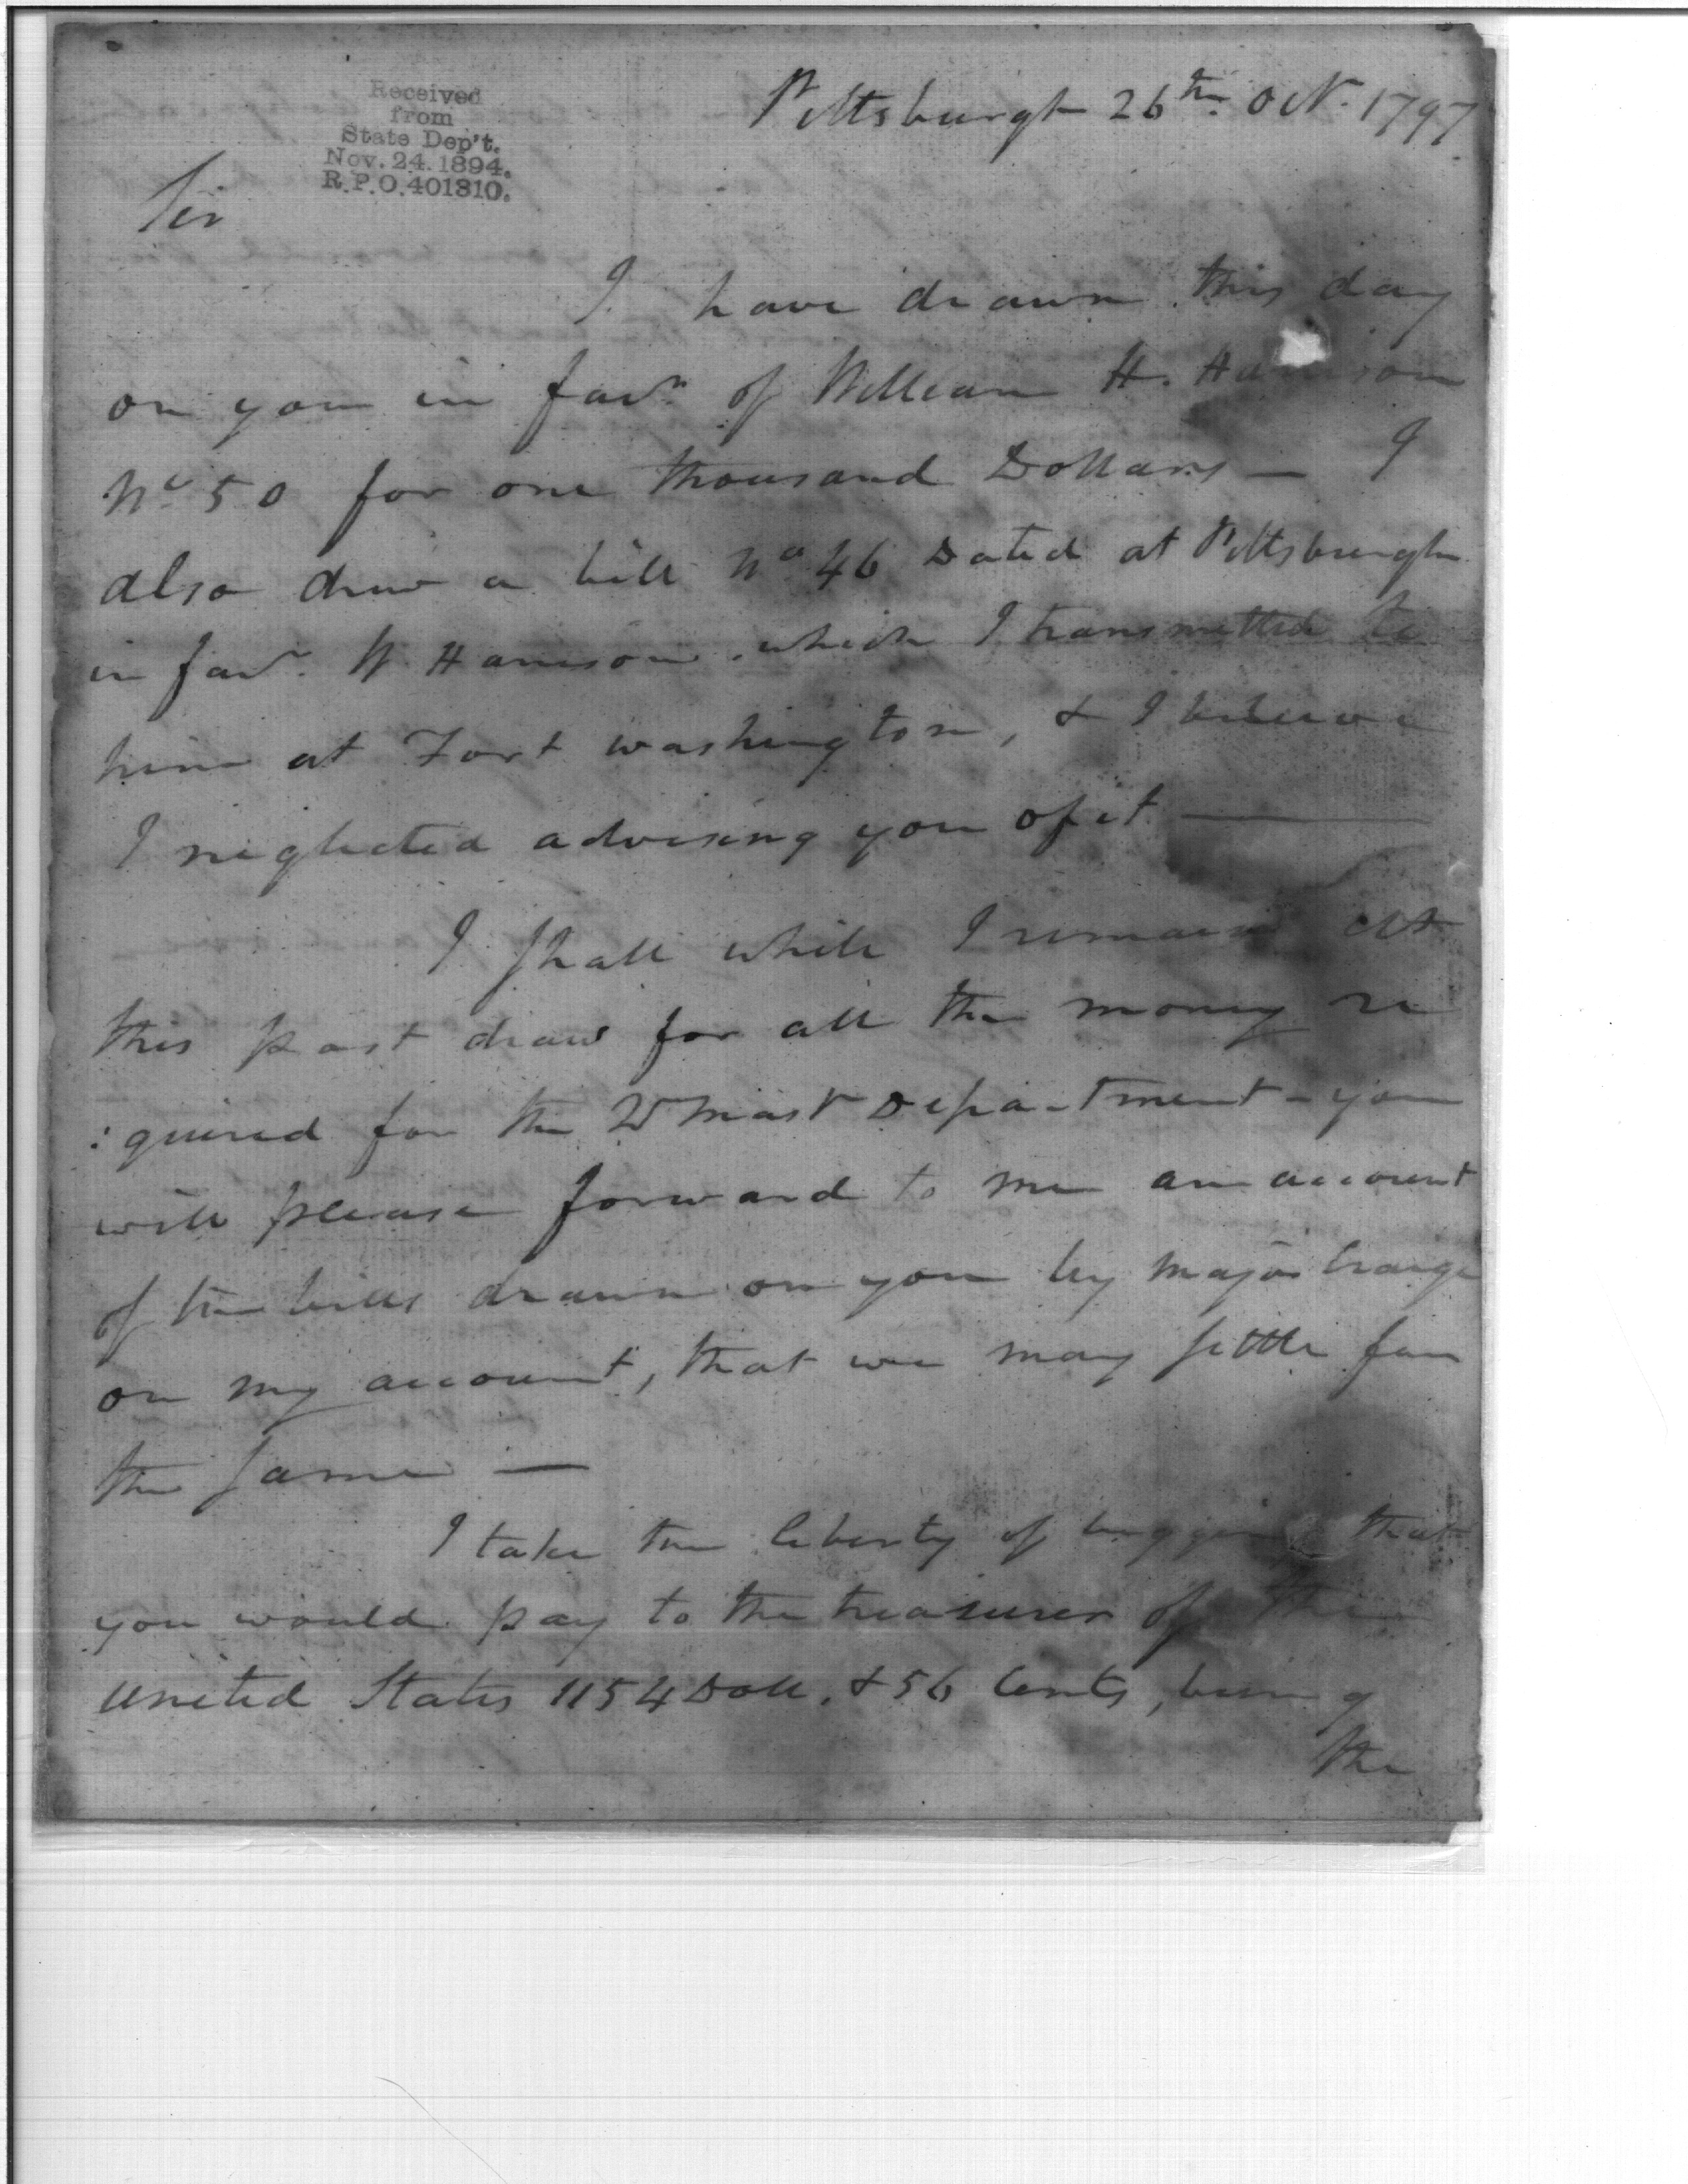 Received
from
State Dep't.
Nov. 24. 1894.
R.P.O. 401310.
Pittsburgh 26th. Oct. 1797
Sir
I have drawn this day
on you in favr. of William H. Harrison
No 50 for one thousand Dollars — I
also drew a bill No 46 Dated at Pittsburgh
in favr. W. Harrison which I transmitted to
him at Fort washington, & I believe
I neglected advising you of it —
I shall while I remain at
this post draw for all the money re
:quired for the Qr Mastr Department - you
will please forward to me an account
of the bills drawn on you by Major Craige
on my account, that we may settle for
the same —
I take the liberty of begging that
you would pay to the treasurer of the
United States 1154 Doll. & 56 Cents, being
the